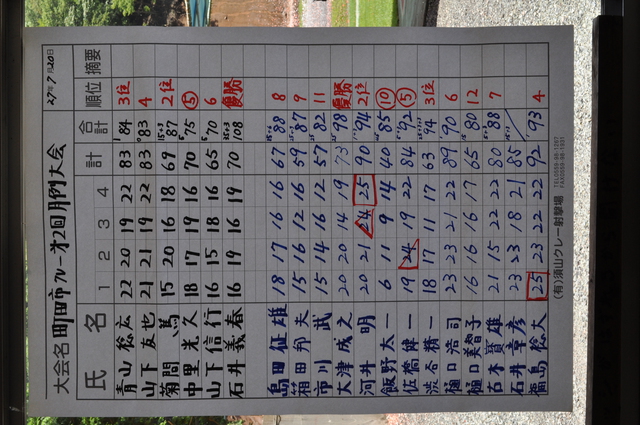 27年7月20日
大会名 町田市クレー第2回月例大会
氏 名 1 2 3 4 計 合計 順位 摘要
青山 稔広 22 20 19 22 83 84 3位
山下 友也 21 21 19 22 83 83 4
菊間 篤 15 20 16 18 69 87 2位
中里 光久 18 17 19 16 70 75 5
山下 信行 16 15 18 16 65 70 6
石井 義春 16 19 16 19 70 108 優勝
島田 征雄 18 17 16 16 67 88 8
箱田 邦夫 15 16 12 16 59 87 9
市川 武 15 14 16 12 57 82 11
大津 成之 20 20 14 19 73 98 優勝
河井 明 20 21 24 25 90 94 2位
飯野 太一 6 11 9 14 40 85 10
佐橋 健一 19 24 19 22 84 92 5
渋谷 精一 18 17 11 17 63 94 3位
樋口 浩司 23 23 21 22 89 90 6
樋口 美智子 16 16 16 17 65 80 12
古木 賢雄 21 15 22 22 80 88 7
石井 章彦 23 23 18 21 85
福島 稔大 25 23 22 22 92 93 4
(有)須山クレー射撃場
TEL0559-98-1267
FAX0559-98-1391